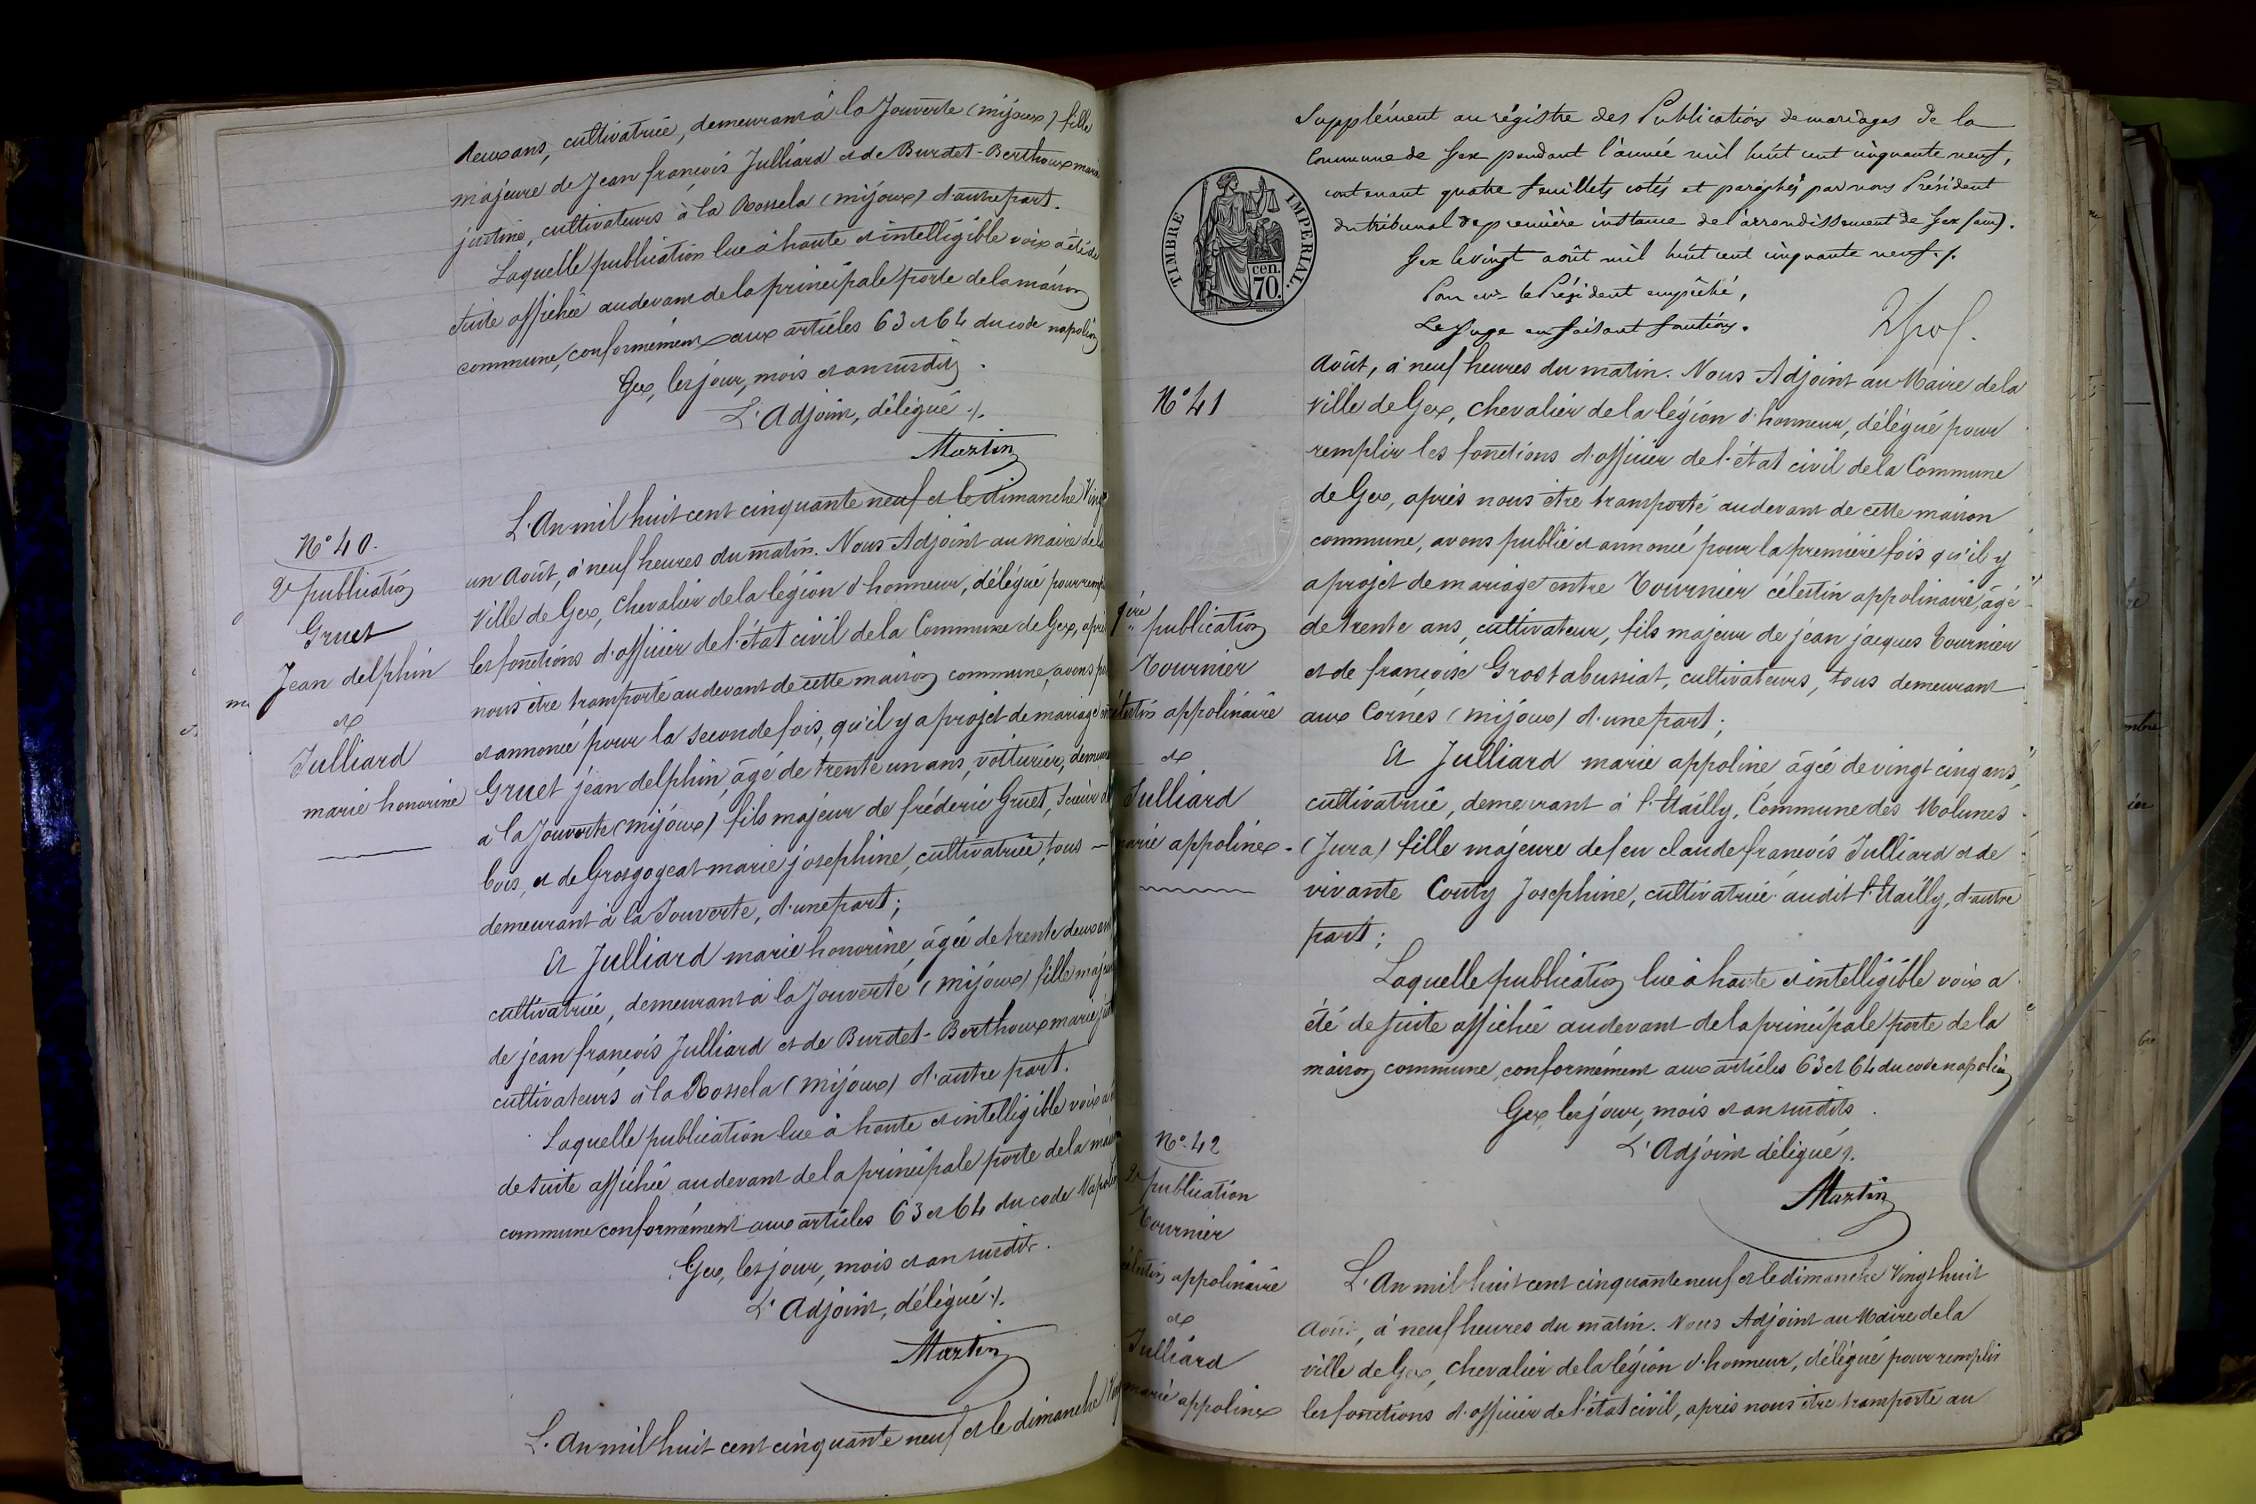 deux ans, cultivatrice, demeurant à la Jouverte (mijoux) fille
majeure de Jean françois Julliard et de Burdet-Berthoux marie
justine, cultivateurs à la Rossela (mijoux) d'autre part.
Laquelle publication lue à haute et intelligible voix a été de
suite affichée au devant de la principale porte de la maison
commune, conformément aux articles 63 et 64 du code napoléon
Gex, les jour, mois et an susdits.
L'Adjoint, délégué ./.
Martin
N° 40.
2e publication
Gruet
Jean delphin
et
Julliard
marie honorine
L'An mil huit cent cinquante neuf et le dimanche Vingt
un Août, à neuf heures du matin. Nous Adjoint au maire de la
Ville de Gex, Chevalier de la légion d'honneur, délégué pour remplir
les fonctions d'officier de l'état civil de la Commune de Gex, après
nous être transporté au devant de cette maison commune, avons
et annoncé pour la seconde fois, qu'il y a projet de mariage
Gruet jean delphin, âgé de trente un ans, voiturier, demeurant
à la Jouverte (mijoux) fils majeur de fréderic Gruet, scieur de
bois, et de Grosgogeat marie josephine, cultivatrice, tous
demeurant à la Jouverte, d'une part;
Et Julliard marie honorine, âgée de trente deux ans
cultivatrice, demeurant à la Jouverte (mijoux) fille majeure
de jean françois Julliard et de Burdet-Berthoux marie
cultivateurs à la Rossela (mijoux) d'autre part.
Laquelle publication lue à haute et intelligible voix a été
de suite affichée au devant de la principale porte de la maison
commune conformément aux articles 63 et 64 du code Napoléon
Gex, les jour, mois et an susdits.
L'Adjoint, délégué ./.
Martin
L'An mil huit cent cinquante neuf et le dimanche
Supplément au régistre des Publications de mariages de la
Commune de Gex pendant l'année mil huit cent cinquante neuf,
contenant quatre feuillets cotés et paraphés par nous Président
du tribunal de première instance de l'arrondissement de Gex (ain).
Gex le vingt août mil huit cent cinquante neuf ./.
Pour Mr le Président empêché,
Le Juge en faisant fonctions.
TIMBRE IMPERIAL.
cen.
70.
N° 41
1ère publication
Tournier
célestin appolinaire
et
Julliard
marie appoline
Août, à neuf heures du matin. Nous Adjoint au Maire de la
Ville de Gex, Chevalier de la légion d'honneur, délégué pour
remplir les fonctions d'officier de l'état civil de la Commune
de Gex, après nous être transporté au devant de cette maison
commune, avons publié et annoncé pour la première fois qu'il y
a projet de mariage entre Tournier célestin appolinaire, âgé
de trente ans, cultivateur, fils majeur de jean jacques Tournier
et de françoise Grostabussiat, cultivateurs, tous demeurant
aux Cornes (mijoux) d'une part;
Et Julliard marie appoline âgée de vingt cinq ans,
cultivatrice, demeurant à l'Hailly, Commune des Molunes
(Jura) fille majeure de feu claude françois Julliard et de
vivante Couty Josephine, cultivatrice audit l'Hailly, d'autre
part;
Laquelle publication lue à haute et intelligible voix a
été de suite affichée au devant de la principale porte de la
maison commune, conformément aux articles 63 et 64 du code napoléon
Gex les jour, mois et an susdits.
L'Adjoint délégué ./.
Martin
N° 42
2e publication
Tournier
célestin appolinaire
et
Julliard
marie appoline
L'An mil huit cent cinquante neuf et le dimanche Vingt huit
Août, à neuf heures du matin. Nous Adjoint au Maire de la
ville de Gex, Chevalier de la légion d'honneur, délégué pour remplir
les fonctions d'officier de l'état civil, après nous être transporté au